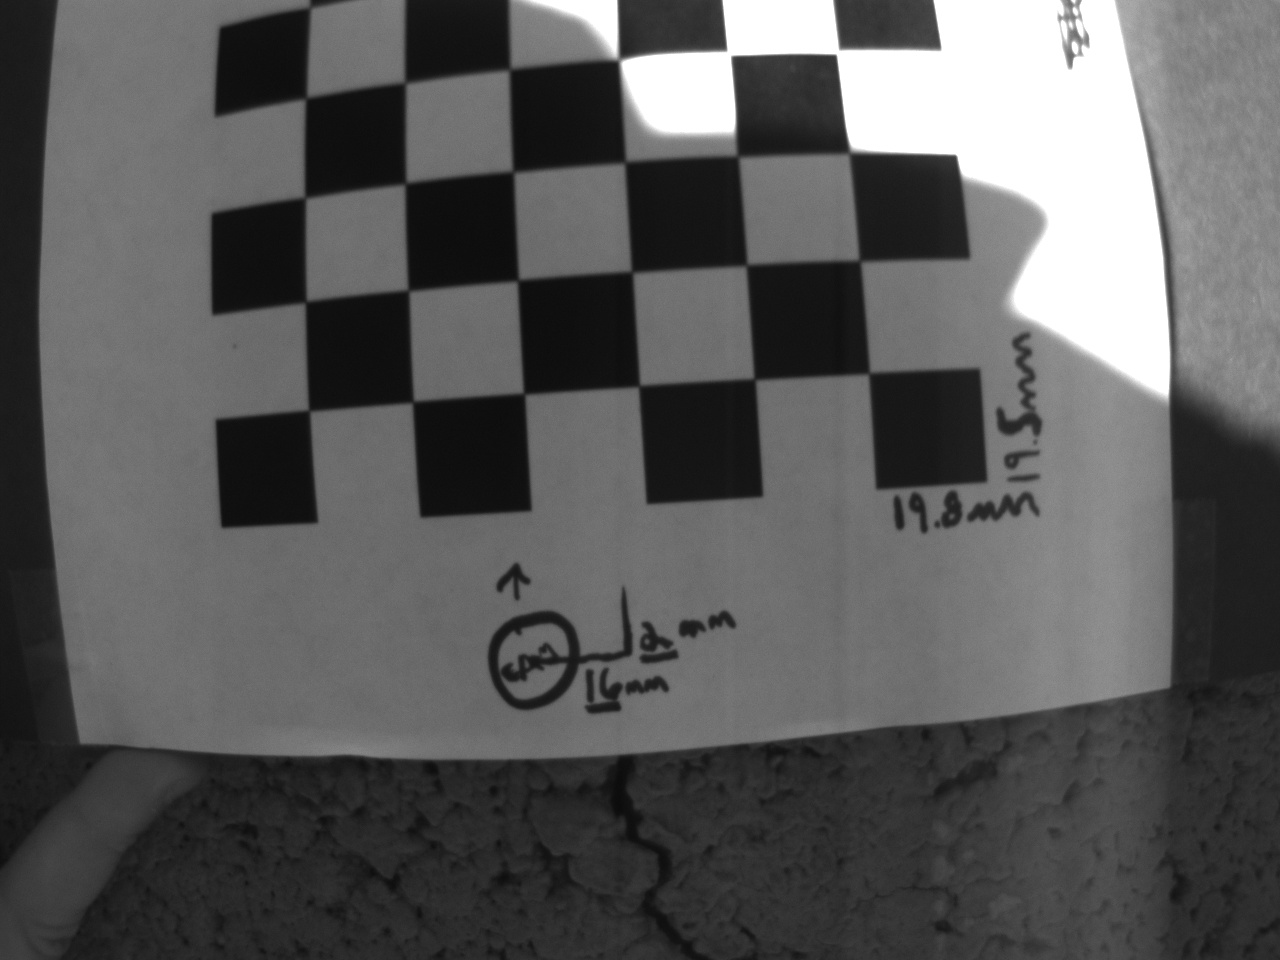 19.5mm
19.8mm
2 mm
16mm